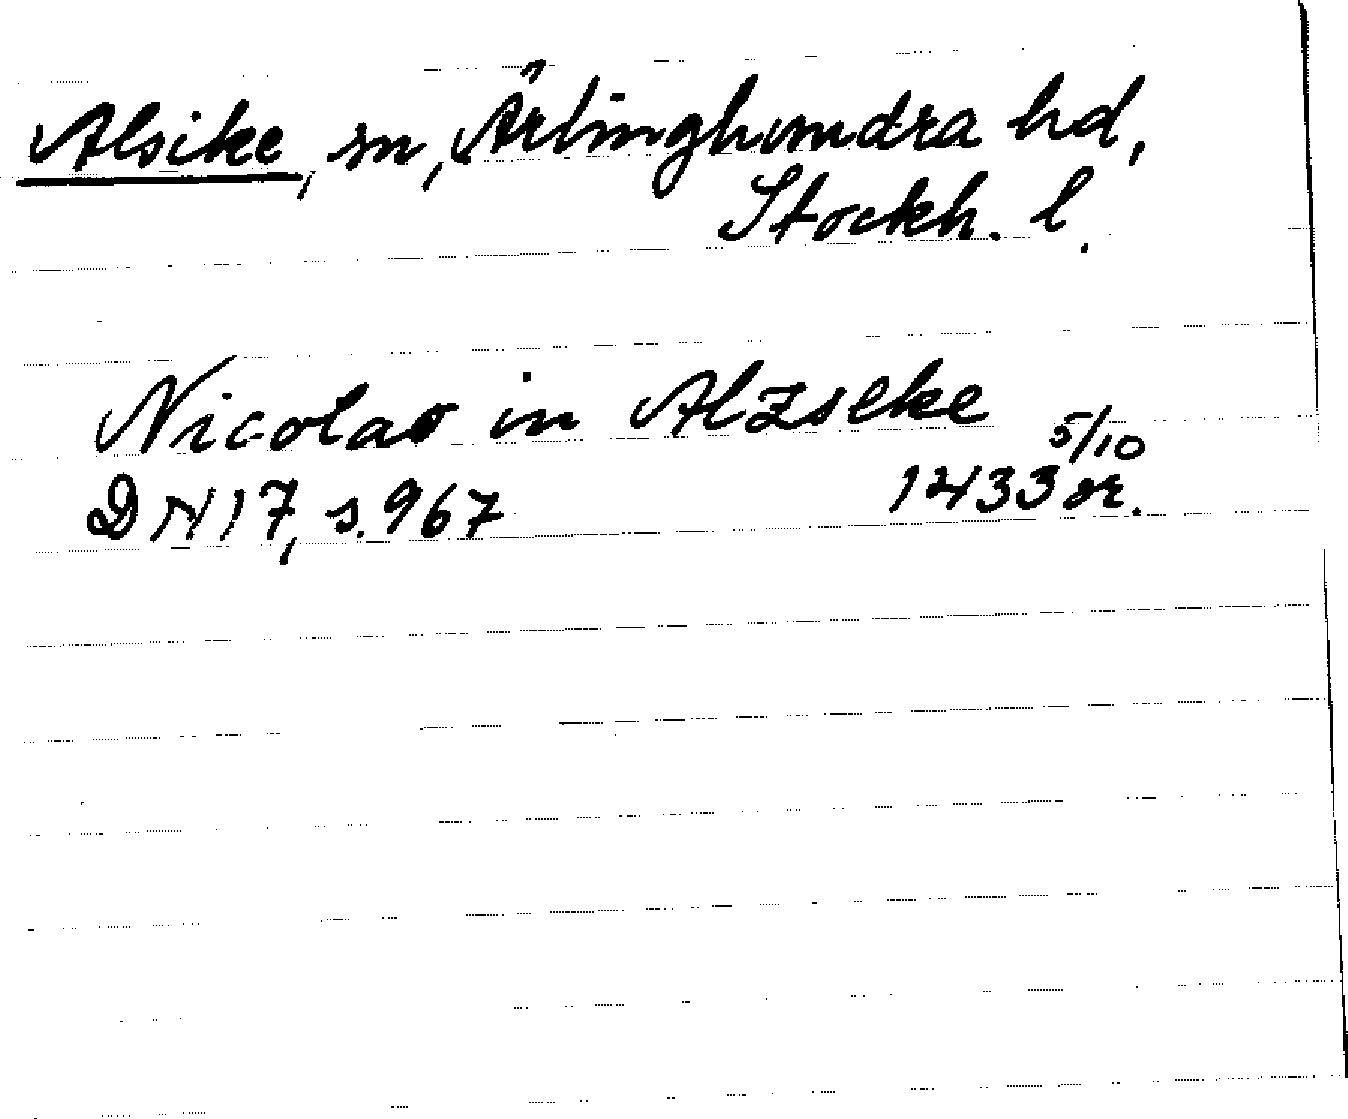 Alsike, sn, Ärlinghundra hd,
Stockh. l.
Nicolao in Alzseke
5/10
DN 17, s. 967 1433 or.